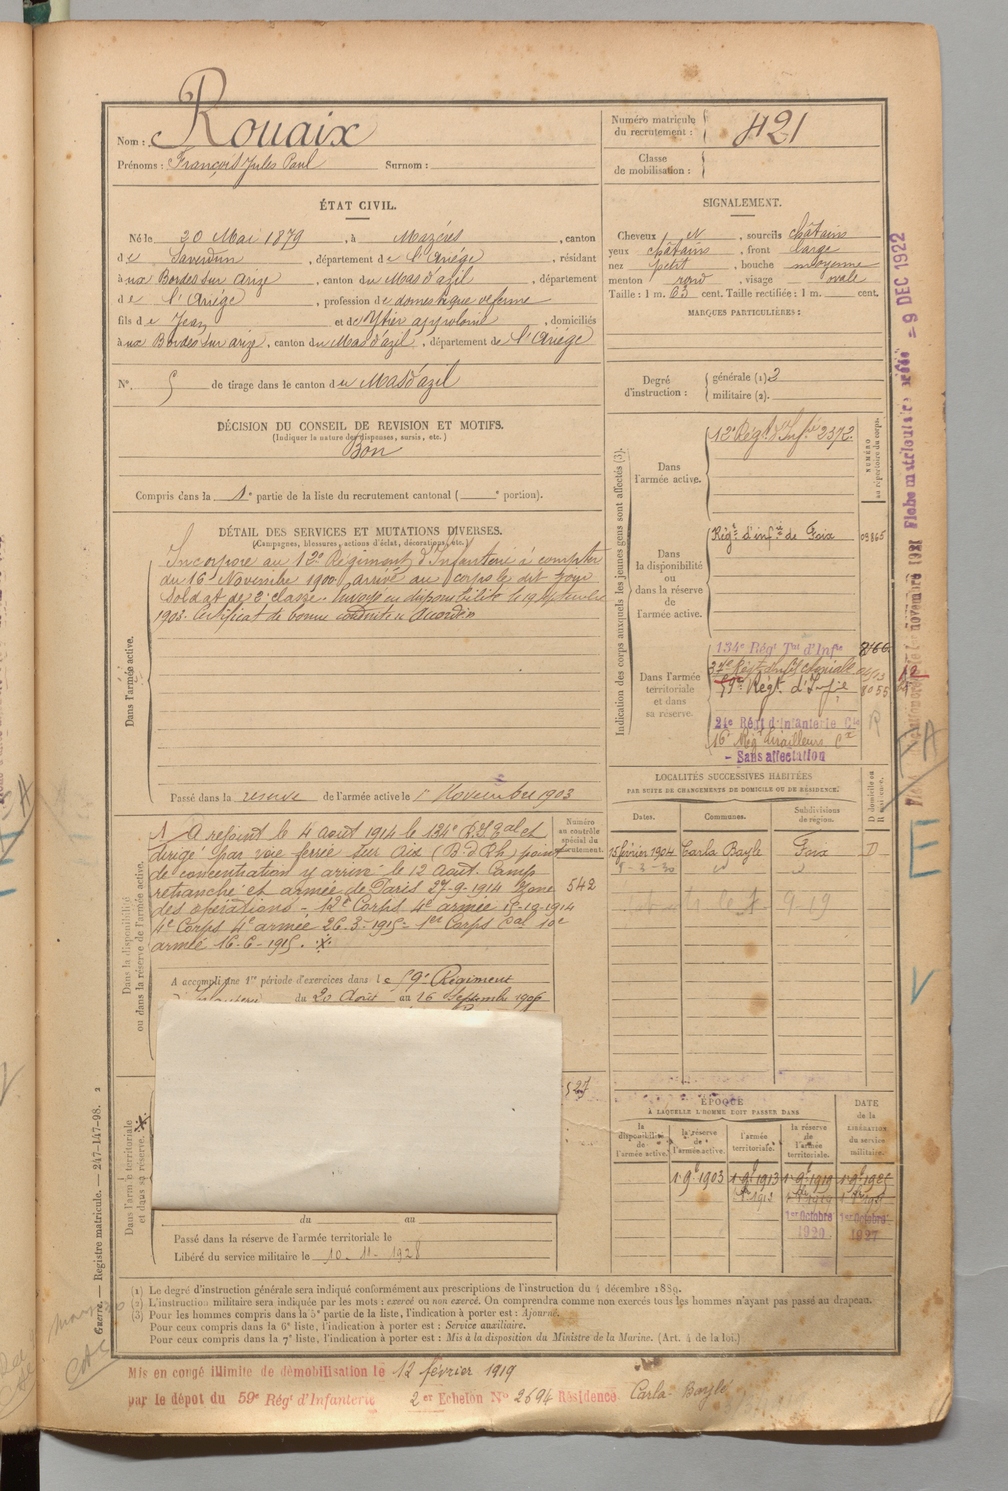 Nom : Rouaix
Prénoms : François Jules Paul Surnom :
Numéro matricule du recrutement : 421
Classe de mobilisation :
ÉTAT CIVIL.
Né le 20 Mai 1879, à Mazères, canton
de Saverdun, département de l'Ariège, résidant
à aux Bordes sur Arize, canton du Mas d'azil, département
de l'Ariège, profession de domestique de ferme
fils de Jean et de Ytier appolonie, domiciliés
à aux Bordes sur arize, canton du Mas d'azil, département de l'Ariège
N° 5 de tirage dans le canton du Mas d'azil
SIGNALEMENT.
Cheveux N, sourcils châtains
yeux châtains, front large
nez petit, bouche moyenne
menton rond, visage ovale
Taille : 1 m. 63 cent. Taille rectifiée : 1 m. cent.
MARQUES PARTICULIÈRES :
Degré d'instruction : générale (1) 2
militaire (2).
DÉCISION DU CONSEIL DE REVISION ET MOTIFS.
(Indiquer la nature des dispenses, sursis, etc.)
Bon
Compris dans la 1e partie de la liste du recrutement cantonal ( e portion).
DÉTAIL DES SERVICES ET MUTATIONS DIVERSES.
(Campagnes, blessures, actions d'éclat, décorations, etc.)
Dans l'armée active.
Incorporé au 12e Régiment d'Infanterie à compter
du 16 Novembre 1900, arrivé au corps le dit jour
Soldat de 2e classe. Envoyé en disponibilité le 19 septembre
1903. Certificat de bonne conduite "Accordé"
Passé dans la réserve de l'armée active le 1er Novembre 1903
Dans la disponibilité ou dans la réserve de l'armée active.
A rejoint le 4 août 1914 le 134e R.I.Tal et
dirigé par voie ferrée sur Aix (B. d Rh) point
de concentration y arrivé le 12 Août. Camp
retranché et armée de Paris 27-9-1914 Zone
des opérations - 12e Corps 4e armée 15-10-1914
4e Corps 4e armée 26.3-1915 - 1er Corps Cal 10e
armée 16-6-1915.
Numéro au contrôle spécial du recrutement.
542
A accompli une 1re période d'exercices dans le 59e Régiment
d'Infanterie du 20 Août au 16 Septembre 1906
Dans l'armée territoriale et dans sa réserve.
527
du au
Passé dans la réserve de l'armée territoriale le
Libéré du service militaire le 10-11-1928
Indication des corps auxquels les jeunes gens sont affectés (3).
NUMÉRO au répertoire du corps.
Dans l'armée active.
12e Régt d'Infie 2372
Dans la disponibilité ou dans la réserve de l'armée active.
Régt d'infie de Foix 03865
Dans l'armée territoriale et dans sa réserve.
134e Régt Tal d'Infie
59e Régt d'Infie 8055
21e Régt d'Infanterie Cle
16e Rég Tirailleurs
- Sans affectation
LOCALITÉS SUCCESSIVES HABITÉES
PAR SUITE DE CHANGEMENTS DE DOMICILE OU DE RÉSIDENCE.
Dates. Communes. Subdivisions de région. D domicile ou R résidence.
15 février 1904 Carla Bayle Foix D
ÉPOQUE
À LAQUELLE L'HOMME DOIT PASSER DANS
DATE de la LIBÉRATION du service militaire.
la disponibilité de l'armée active.
la réserve de l'armée active.
l'armée territoriale.
la réserve de l'armée territoriale.
1.9e 1903 1.9e 1913 1.9e 1919 1.9e 1925
1er Octobre 1920 1er Octobre 1927
(1) Le degré d'instruction générale sera indiqué conformément aux prescriptions de l'instruction du 4 décembre 1889.
(2) L'instruction militaire sera indiquée par les mots : exercé ou non exercé. On comprendra comme non exercés tous les hommes n'ayant pas passé au drapeau.
(3) Pour les hommes compris dans la 5e partie de la liste, l'indication à porter est : Ajourné.
Pour ceux compris dans la 6e liste, l'indication à porter est : Service auxiliaire.
Pour ceux compris dans la 7e liste, l'indication à porter est : Mis à la disposition du Ministre de la Marine. (Art. 4 de la loi.)
Guerre. — Registre matricule. — 247-147-98. 2
Mis en congé illimité de démobilisation le 12 février 1919
par le dépôt du 59e Régt d'Infanterie 2er Echelon N° 2694 Résidence Carla-Bayle
= 9 DEC 1922